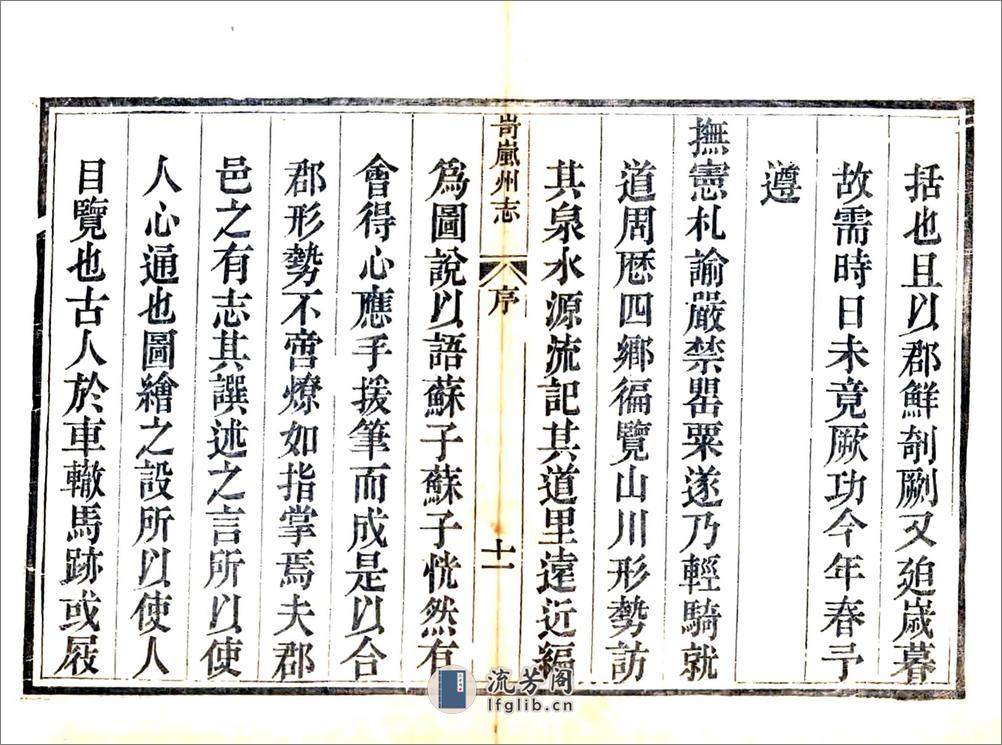 括也且以郡鮮剞劂又廹歲暮
故需時日未竟厥功今年春予
遵
撫憲札諭嚴禁罌粟遂乃輕騎就
道周歴四鄉徧覽山川形勢訪
其泉水源流記其道里遠近編
岢嵐州志 序 十一
爲圖說以語蘇子蘇子恍然有
會得心應手援筆而成是以合
郡形勢不啻燎如指掌焉夫郡
邑之有志其譔述之言所以使
人心通也圖繪之設所以使人
目覽也古人於車轍馬跡或屐
流芳阁
lfglib.cn